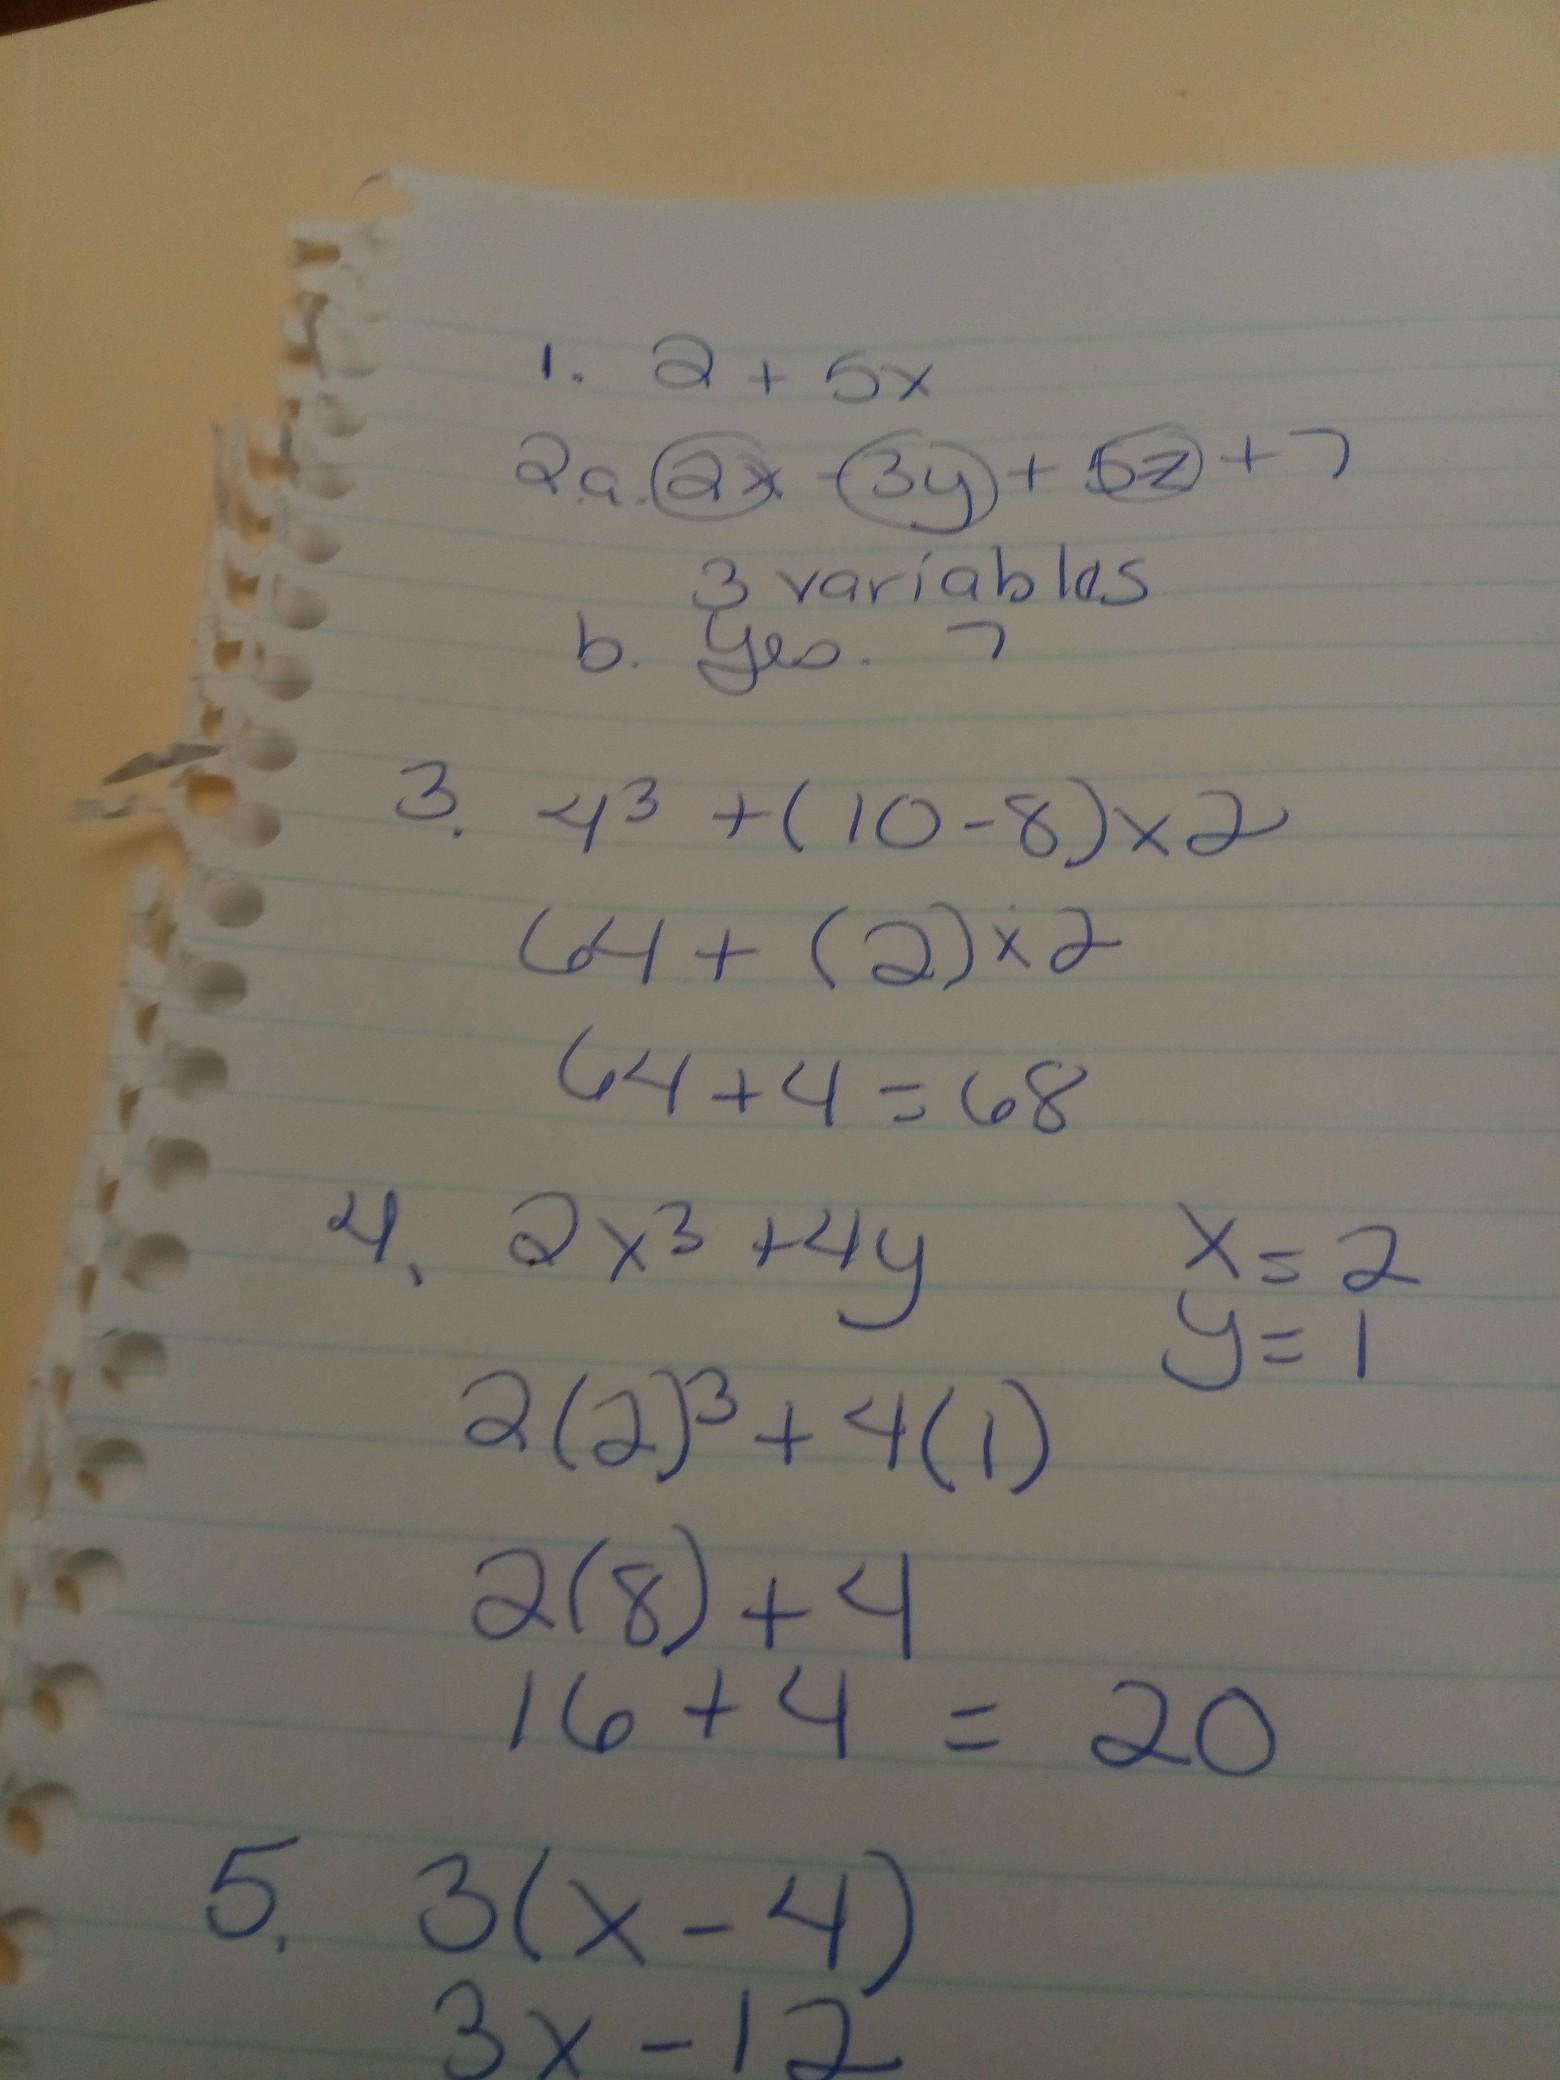 1. 2 + 5x
2.a. 2x - 3y + 5z + 7
3 variables
b. Yes. 7
3. 4³ + (10 - 8) x 2
64 + (2) x 2
64 + 4 = 68
4. 2x³ + 4y x = 2
y = 1
2(2)³ + 4(1)
2(8) + 4
16 + 4 = 20
5. 3(x - 4)
3x - 12